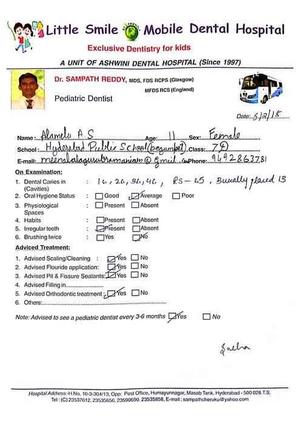 Little Smile Mobile Dental Hospital
Exclusive Dentistry for kids
A UNIT OF ASHWINI DENTAL HOSPITAL (Since 1997)
Dr. SAMPATH REDDY, MDS, FDS RCPS (Glasgow)
MFDS RCS (England)
Pediatric Dentist
Date: 5/2/18
Name: Alamelu A S Age: 11 Sex: Female
School: Hyderabad Public School (Begumpet) Class: 7D
E-mail: Phone: 9492863781
On Examination:
1. Dental Caries in (Cavities) : 16, 26, 36, 46, Buccally placed 13
2. Oral Hygiene Status : Good Average Poor
3. Physiological Spaces : Present Absent
4. Habits : Present Absent
5. Irregular tooth : Present Absent
6. Brushing twice : Yes No
Adviced Treatment:
1. Advised Scaling/Cleaning : Yes No
2. Advised Flouride application: Yes No
3. Advised Pit & Fissure Sealants: Yes No
4. Advised Filling in
5. Advised Orthodontic treatment: Yes No
6. Others:
Note: Advised to see a pediatric dentist every 3-6 months Yes No
Hospital Address: H.No. 10-3-304/13, Opp: Post Office, Humayunnagar, Masab Tank, Hyderabad - 500 028 T.S.
Tel: (C) 23537612, 23535656, 23590690, 23535858, E-mail: